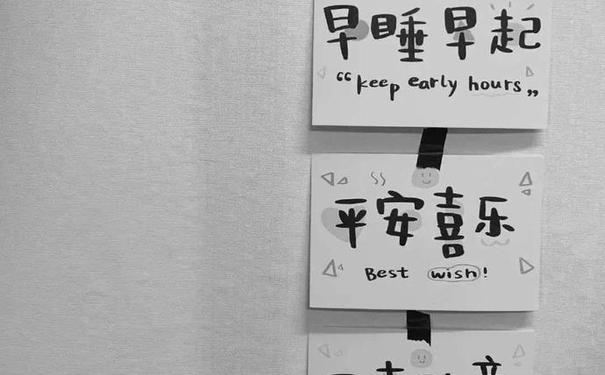 早睡早起
“keep early hours„
平安喜乐
Best wish!